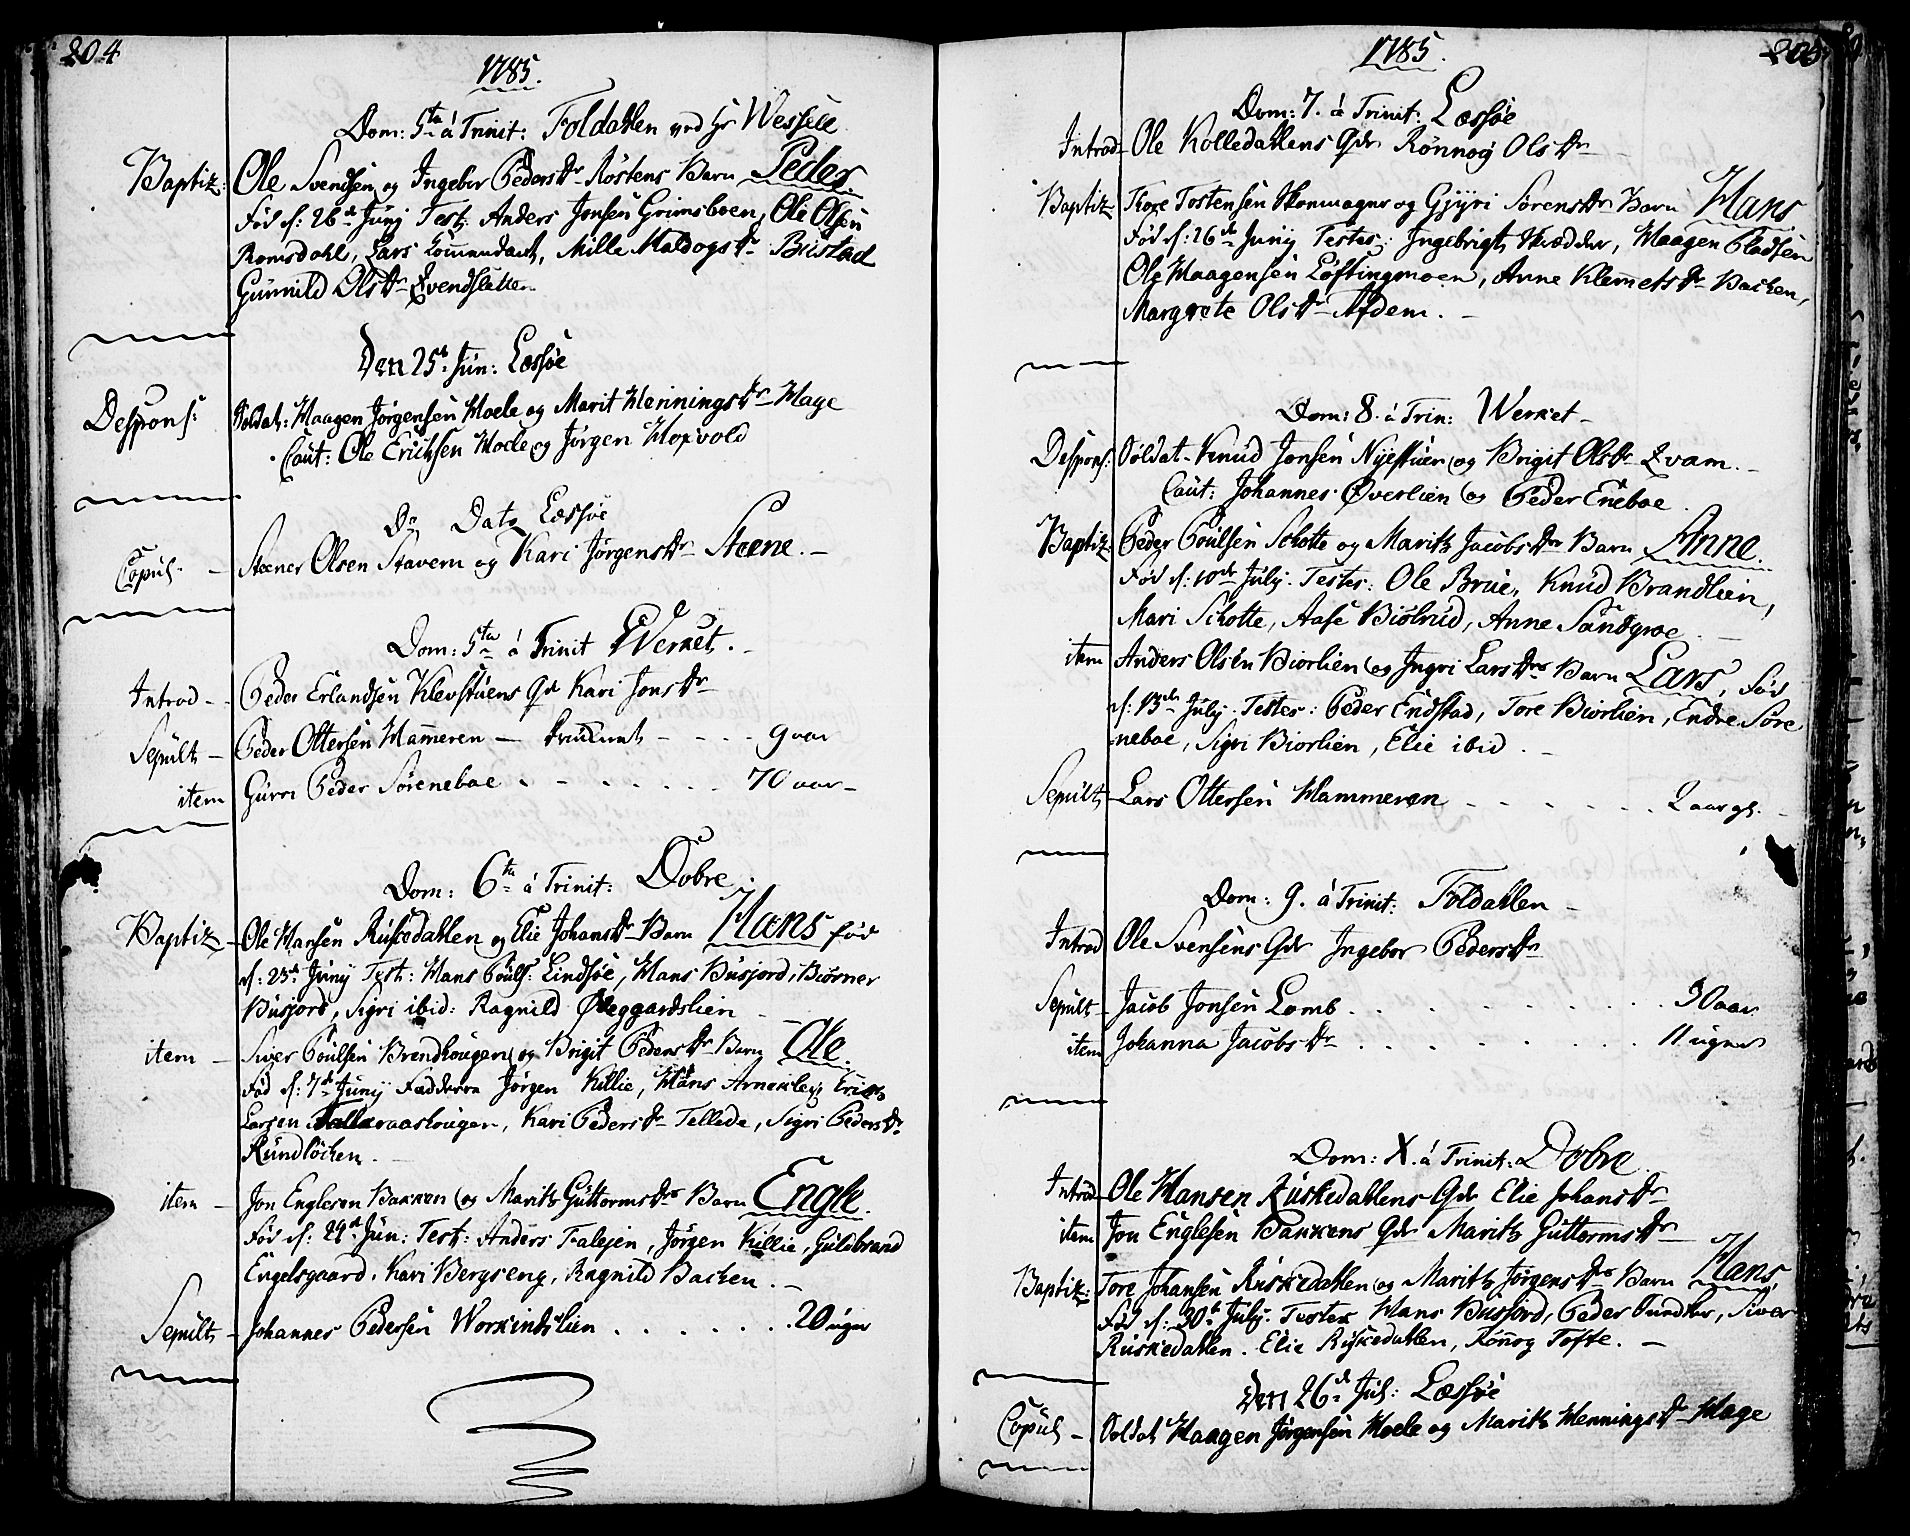 204
1785.
Dom: 5ta á Trinit: Foldahlen ved Hr Wessell
Baptiz: Ole Svendsen og Ingebor Pedersdr Röstens Barn Peder.
Föd d: 26de Junj Test: Anders Jonsen Grimsboen, Ole Olsen
Romsdahl, Lars Commendant, Mille Haldogsdr Bustad
Gunnild Olsdr Evendsletten
Den 25de Jun: Lessöe
Despons: Soldat: Haagen Jörgensen Hoele og Marit Henningsdr Hage
Caut: Ole Erichsen Hoele og Jörgen Hopvold
Do Dato Lessöe
Copul. – Steener Olsen Stavem og Kari Jörgensdr Steene. –
Dom: 5ta á Trinit Werket. –
Introd – Peder Erlandsen Klevstuens Qde Kari Jonsdr
Sepult – Peder Ottersen Hameren – – – – – 9 aar
item Gurri Peder Söreneboe . – – – . . . 70 aar –
Dom: 6ta á Trinit: Dobre.
Baptiz – Ole Hansen Ruskedahlen og Elie Johansdr Barn Hans föd
d: 25de Junij Test: Hans Pouls: Lindsöe, Hans Busjord, Biörner
Busjord, Sigri ibid: Ragnild Öleggardslien
item – Siver Poulsen Brendhougen og Brigit Pedersdr Barn Ole.
Föd d: 7de Junij Fadderne Jörgen Killie, Hans Arnekleg, Erich
Larsen Tallaraashougen, Kari Pedersdr Tellede, Sigri Pedersdr
Rundlöchen. –
item – Jon Englesen Bakken og Marith Guttormsdr Barn Engle.
Föd d: 29de Jun: Test: Anders Falejen, Jörgen Killie, Gulbrand
Engelsgaard, Kari Bergseng, Ragnild Backen. –
Sepult – Johannes Pedersen Workindslien . . . . . . 20 uger
205
1785.
Dom: 7. á Trinit: Lessöe
Introd – Ole Kolledahlens Qde Rönnog Olsdr –
Baptiz Tore Tostensen Skoemager og Gjyri Sörensdr Barn Hans
Föd d: 26de Junij Testes: Ingebrigt Skrædder, Haagen Pladsen
Ole Haagensen Löftingmoen, Anne Klemetsdr Backen,
Margrete Olsdr Afdem. –
Dom: 8. á Trin: Werket –
Despons: Soldat – Knud Jonsen Nijestuen og Brigit Olsdr Qvam. –
Caut: Johannes Överlien og Peder Eneboe
Baptiz: Peder Poulsen Schotte og Marith Jacobsdr Barn Anne.
Föd d: 10de July. Testes: Ole Brue, Knud Brandlien,
Mari Schotte, Aase Biölrud, Anne Sandgroe. –
item Anders Olsen Biorlien og Ingri Larsdr Barn Lars, Föd
d: 13de July. Testes: Peder Endstad, Tore Biorlien, Endre Söre
neboe, Sigri Biorlien, Elie ibid. –
Sepult – Lars Ottersen Hammeren – – . . – . . 2 aar gl. –
Dom: 9. á Trinit: Foldahlen –
Introd Ole Svensens Qde Ingebor Pedersdr
Sepult – Jacob Jonsen Lomb . . . . . . . . . 30 aar
item Johanna Jacobsdr . . . . . . . . 11 uger
Dom: X. á Trinit: Dobre
Introd – Ole Hansen Ruskedahlens Qde Elie Johansdr
item Jon Englesen Bakkens Qde Marith Guttormsdr –
Baptiz: Tore Johansen Ruskedahlen og Marith Jörgensdr Barn Hans,
Föd d: 30te July. Testes Hans Busjord, Peder Tundher, Siver
Ruskedahlen. Elie Ruskedahlen, Rönog Tofte. –
Den 26de Jul: Lessöe
Copul – Soldat Haagen Jörgensen Hoele og Marith Henningsdr Hage